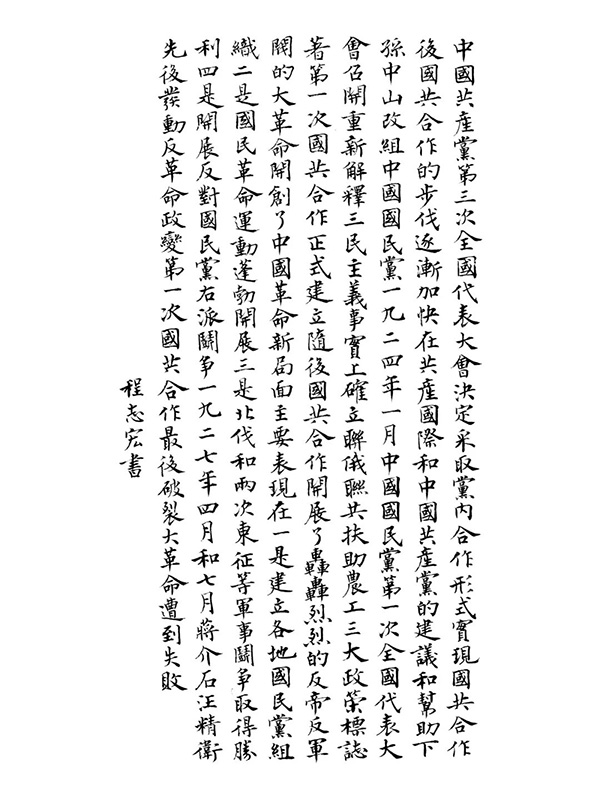 中國共產黨第三次全國代表大會決定采取黨內合作形式實現國共合作
後國共合作的步伐逐漸加快在共產國際和中國共產黨的建議和幫助下
孫中山改組中國國民黨一九二四年一月中國國民黨第一次全國代表大
會召開重新解釋三民主義事實上確立聯俄聯共扶助農工三大政策標誌
著第一次國共合作正式建立隨後國共合作開展了轟轟烈烈的反帝反軍
閥的大革命開創了中國革命新局面主要表現在一是建立各地國民黨組
織二是國民革命運動蓬勃開展三是北伐和兩次東征等軍事鬭爭取得勝
利四是開展反對國民黨右派鬭爭一九二七年四月和七月蔣介石汪精衛
先後發動反革命政變第一次國共合作最後破裂大革命遭到失敗
程志宏書